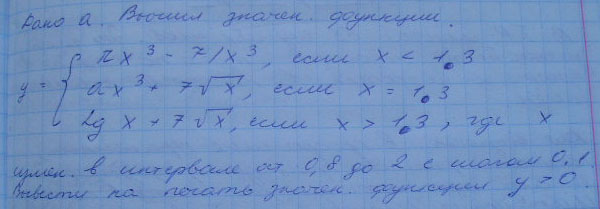 Дано a. Вычисл значен. функции.
πx³ - 7/x³, если x < 1.3
y = { ax³ + 7√x, если x = 1.3
lg x + 7√x, если x > 1.3, где x
измен. в интервале от 0,8 до 2 с шагом 0,1
Вывести на печать значен. функции y > 0.